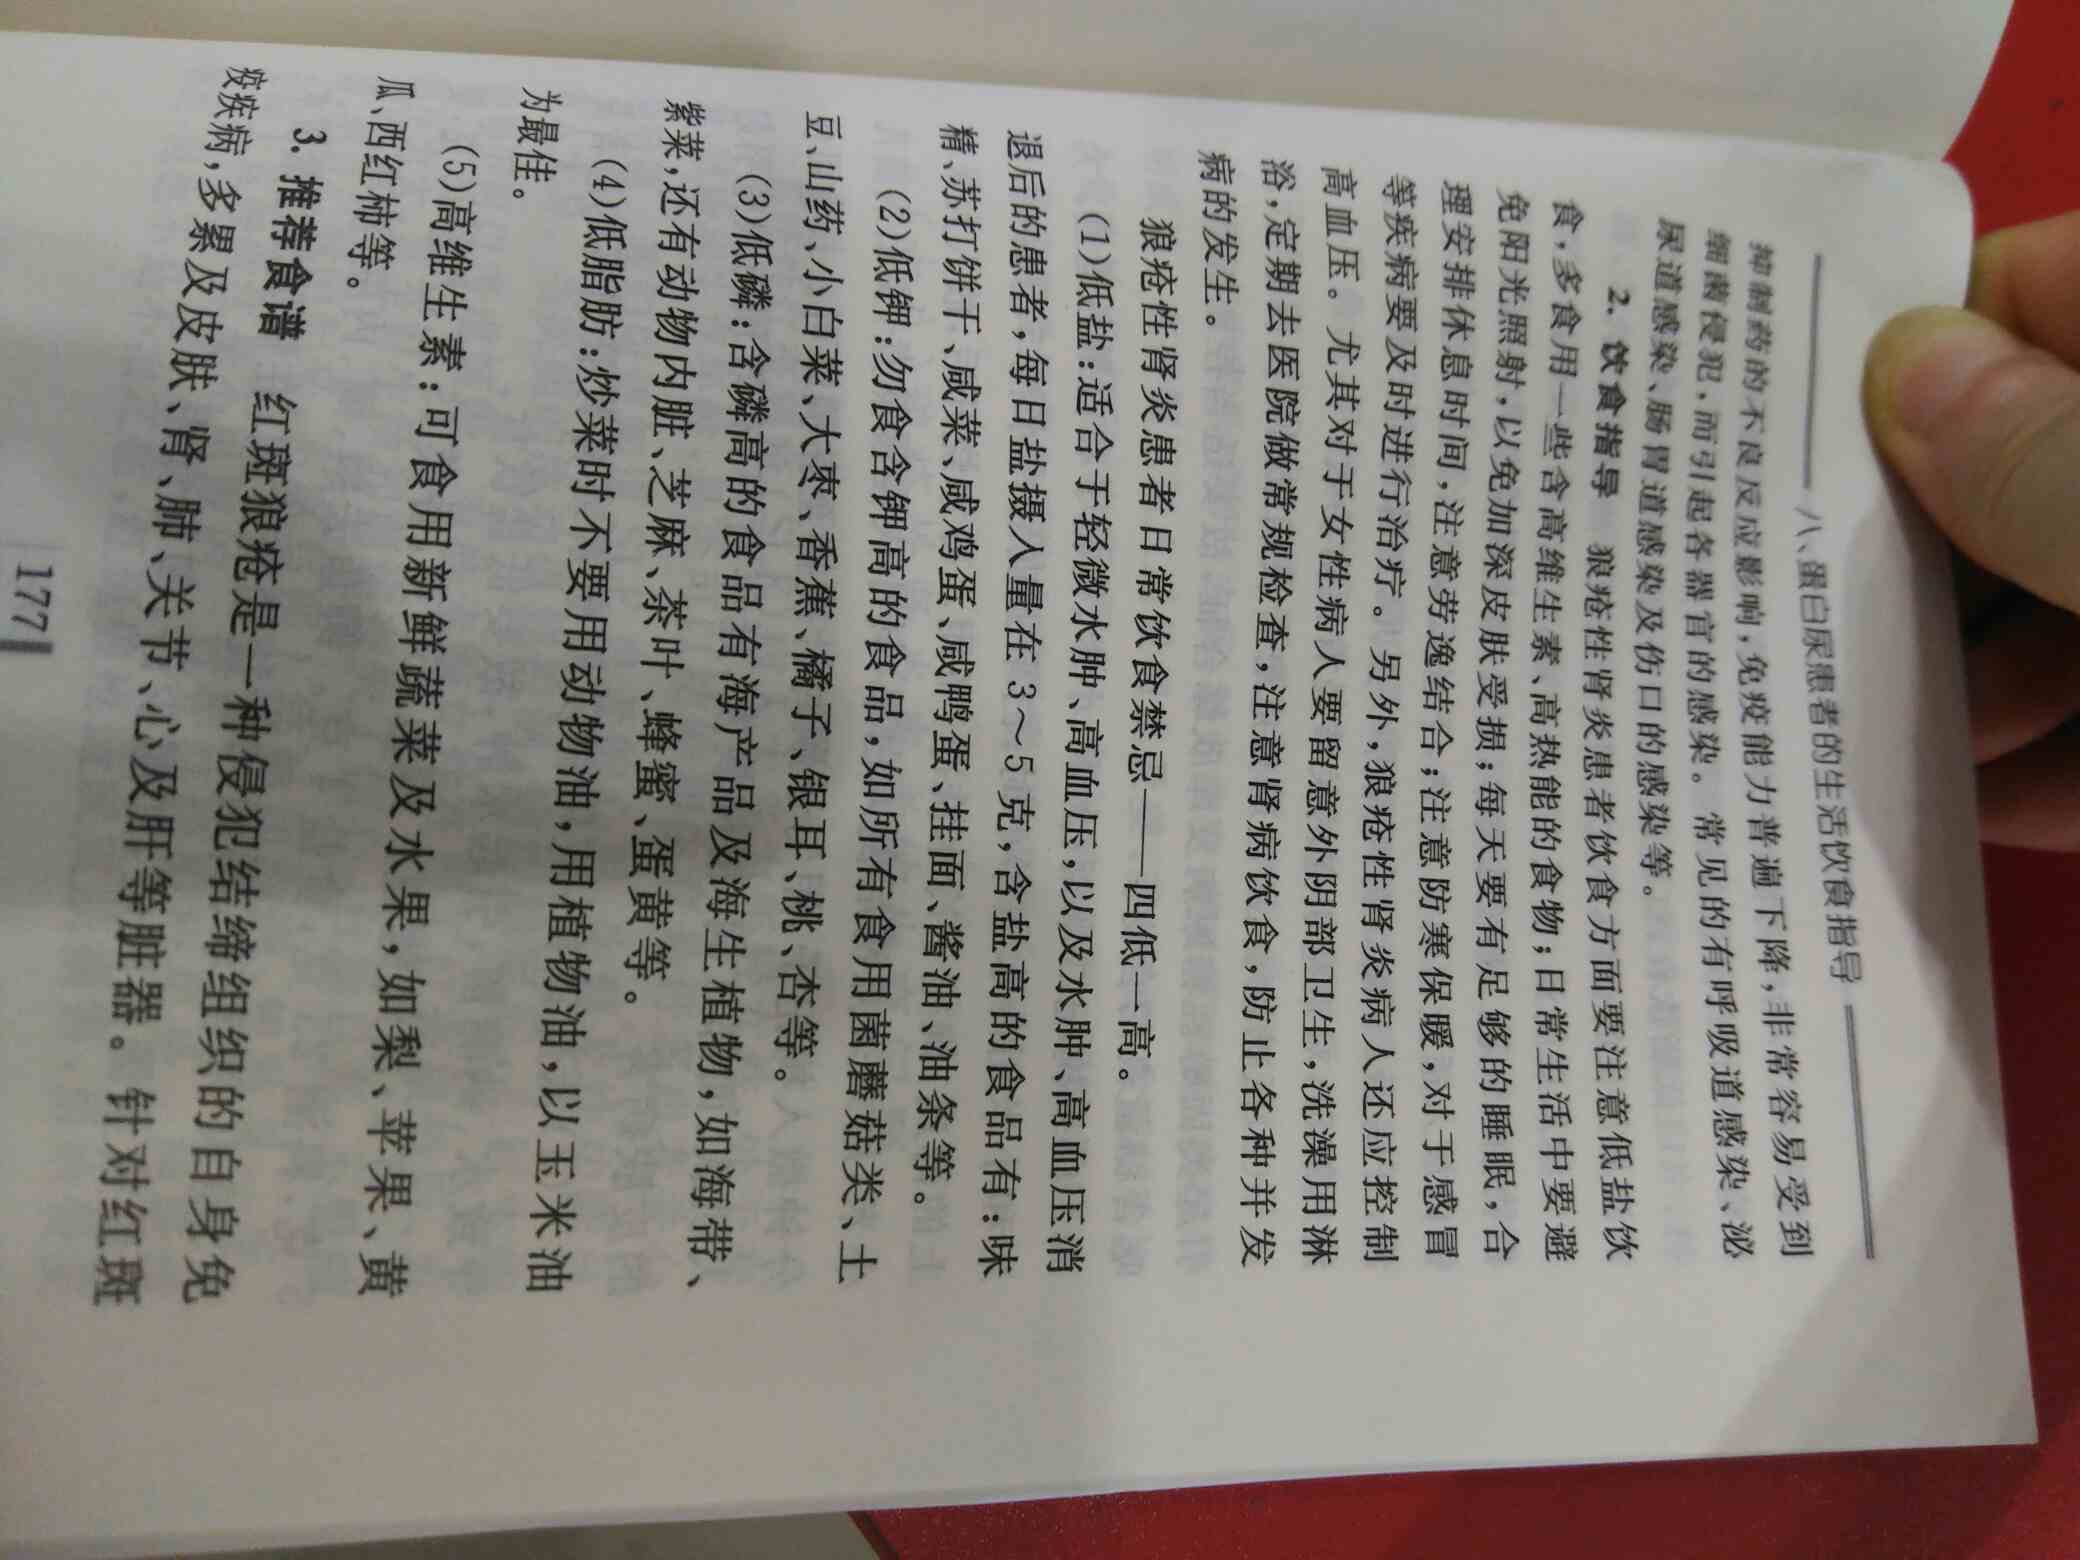 八、蛋白尿患者的生活饮食指导
抑制药的不良反应影响,免疫能力普遍下降,非常容易受到
细菌侵犯,而引起各器官的感染。常见的有呼吸道感染、泌
尿道感染、肠胃道感染及伤口的感染等。
2. 饮食指导 狼疮性肾炎患者饮食方面要注意低盐饮
食,多食用一些含高维生素、高热能的食物;日常生活中要避
免阳光照射,以免加深皮肤受损;每天要有足够的睡眠,合
理安排休息时间,注意劳逸结合;注意防寒保暖,对于感冒
等疾病要及时进行治疗。另外,狼疮性肾炎病人还应控制
高血压。尤其对于女性病人要留意外阴部卫生,洗澡用淋
浴,定期去医院做常规检查,注意肾病饮食,防止各种并发
病的发生。
狼疮性肾炎患者日常饮食禁忌——四低一高。
(1)低盐:适合于轻微水肿、高血压,以及水肿、高血压消
退后的患者,每日盐摄入量在3～5克,含盐高的食品有:味
精、苏打饼干、咸菜、咸鸡蛋、咸鸭蛋、挂面、酱油、油条等。
(2)低钾:勿食含钾高的食品,如所有食用菌蘑菇类、土
豆、山药、小白菜、大枣、香蕉、橘子、银耳、桃、杏等。
(3)低磷:含磷高的食品有海产品及海生植物,如海带、
紫菜,还有动物内脏、芝麻、茶叶、蜂蜜、蛋黄等。
(4)低脂肪:炒菜时不要用动物油,用植物油,以玉米油
为最佳。
(5)高维生素:可食用新鲜蔬菜及水果,如梨、苹果、黄
瓜、西红柿等。
3. 推荐食谱 红斑狼疮是一种侵犯结缔组织的自身免
疫疾病,多累及皮肤、肾、肺、关节、心及肝等脏器。针对红斑
177